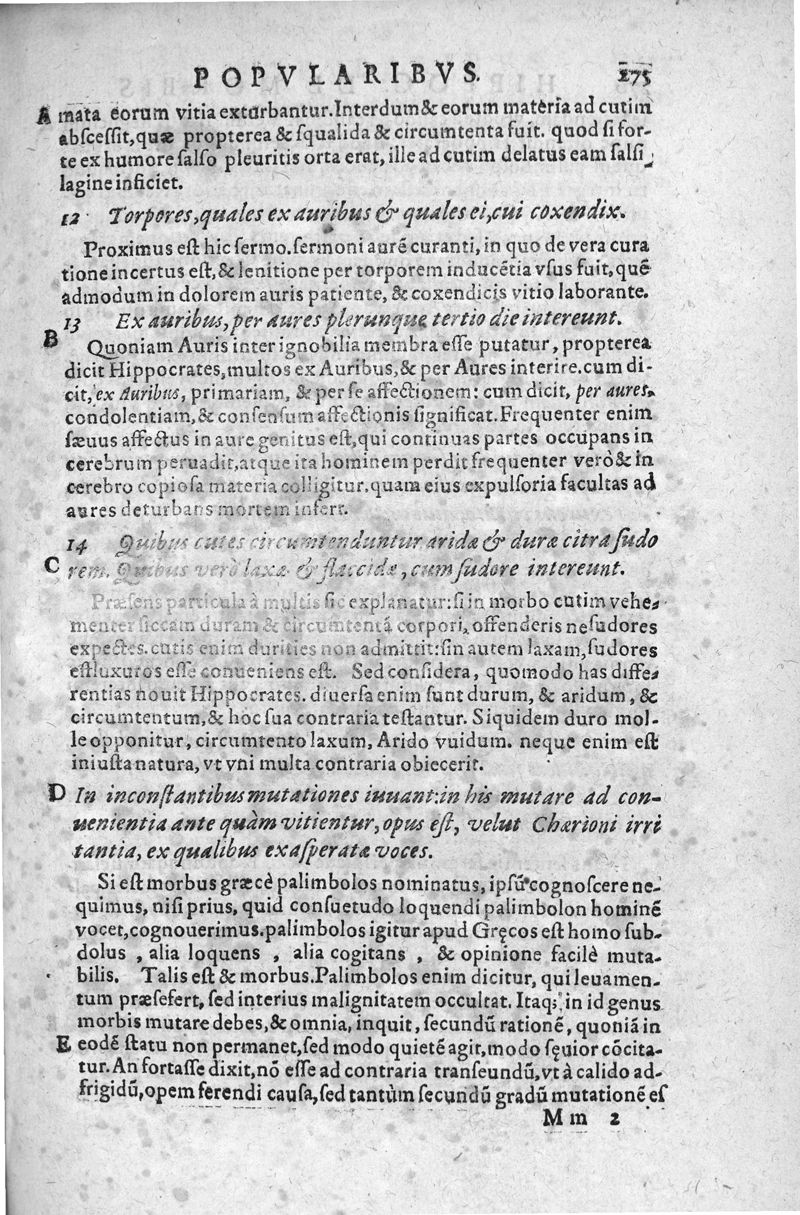 POPVLARIBVS. 275
A mata eorum vitia exturbantur. Interdum & eorum materia ad cutim
abscessit, quæ propterea & squalida & circumtenta fuit. quod si for-
te ex humore salso pleuritis orta erat, ille ad cutim delatus eam salsi
lagine inficiet.
12 Torpores, quales ex auribus & quales ei, cui coxendix.
Proximus est hic sermo. sermoni aurẽ curanti, in quo de vera cura
tione incertus est, & lenitione per torporem inducẽtia vsus fuit, quẽ
admodum in dolorem auris patiente, & coxendicis vitio laborante.
13 Ex auribus, per aures plerunque tertio die intereunt.
B Quoniam Auris inter ignobilia membra esse putatur, propterea
dicit Hippocrates, multos ex Auribus, & per Aures interire. cum di-
cit, ex Auribus, primariam, & per se affectionem: cum dicit, per aures,
condolentiam, & consensum affectionis significat. Frequenter enim
sæuus affectus in aure genitus est, qui continuas partes occupans in
cerebrum peruadit, atque ita hominem perdit frequenter verò & in
cerebro copiosa materia colligitur, quam eius expulsoria facultas ad
aures deturbans mortem infert.
14 Quibus cutes circumtenduntur aridæ & duræ citra sudo
C rem. Quibus verò laxæ & flaccidæ, cum sudore intereunt.
Præsens particula à multis sic explanatur: si in morbo cutim vehe-
menter siccam duram & circumtentã corpori, offenderis ne sudores
expectes. cutis enim durities non admittit: sin autem laxam, sudores
esfluxuros esse conueniens est. Sed considera, quomodo has diffe-
rentias nouit Hippocrates. diuersa enim sunt durum, & aridum, &
circumtentum, & hoc sua contraria testantur. Siquidem duro mol-
le opponitur, circumtento laxum, Arido vuidum. neque enim est
iniusta natura, vt vni multa contraria obiecerit.
D In inconstantibus mutationes iuuant: in his mutare ad con-
uenientia ante quàm vitientur, opus est, velut Chærioni irri
tantia, ex qualibus exasperatæ voces.
Si est morbus græcè palimbolos nominatus, ipsũ cognoscere ne-
quimus, nisi prius, quid consuetudo loquendi palimbolon hominẽ
vocet, cognouerimus. palimbolos igitur apud Gręcos est homo sub-
dolus, alia loquens, alia cogitans, & opinione facilè muta-
bilis. Talis est & morbus. Palimbolos enim dicitur, qui leuamen-
tum præsefert, sed interius malignitatem occultat. Itaq; in id genus
morbis mutare debes, & omnia, inquit, secundũ rationẽ, quoniã in
E eodẽ statu non permanet, sed modo quietẽ agit, modo sęuior cõcita-
tur. An fortasse dixit, nõ esse ad contraria transeundũ, vt à calido ad
frigidũ, opem ferendi causa, sed tantùm secundũ gradũ mutationẽ es
Mm 2